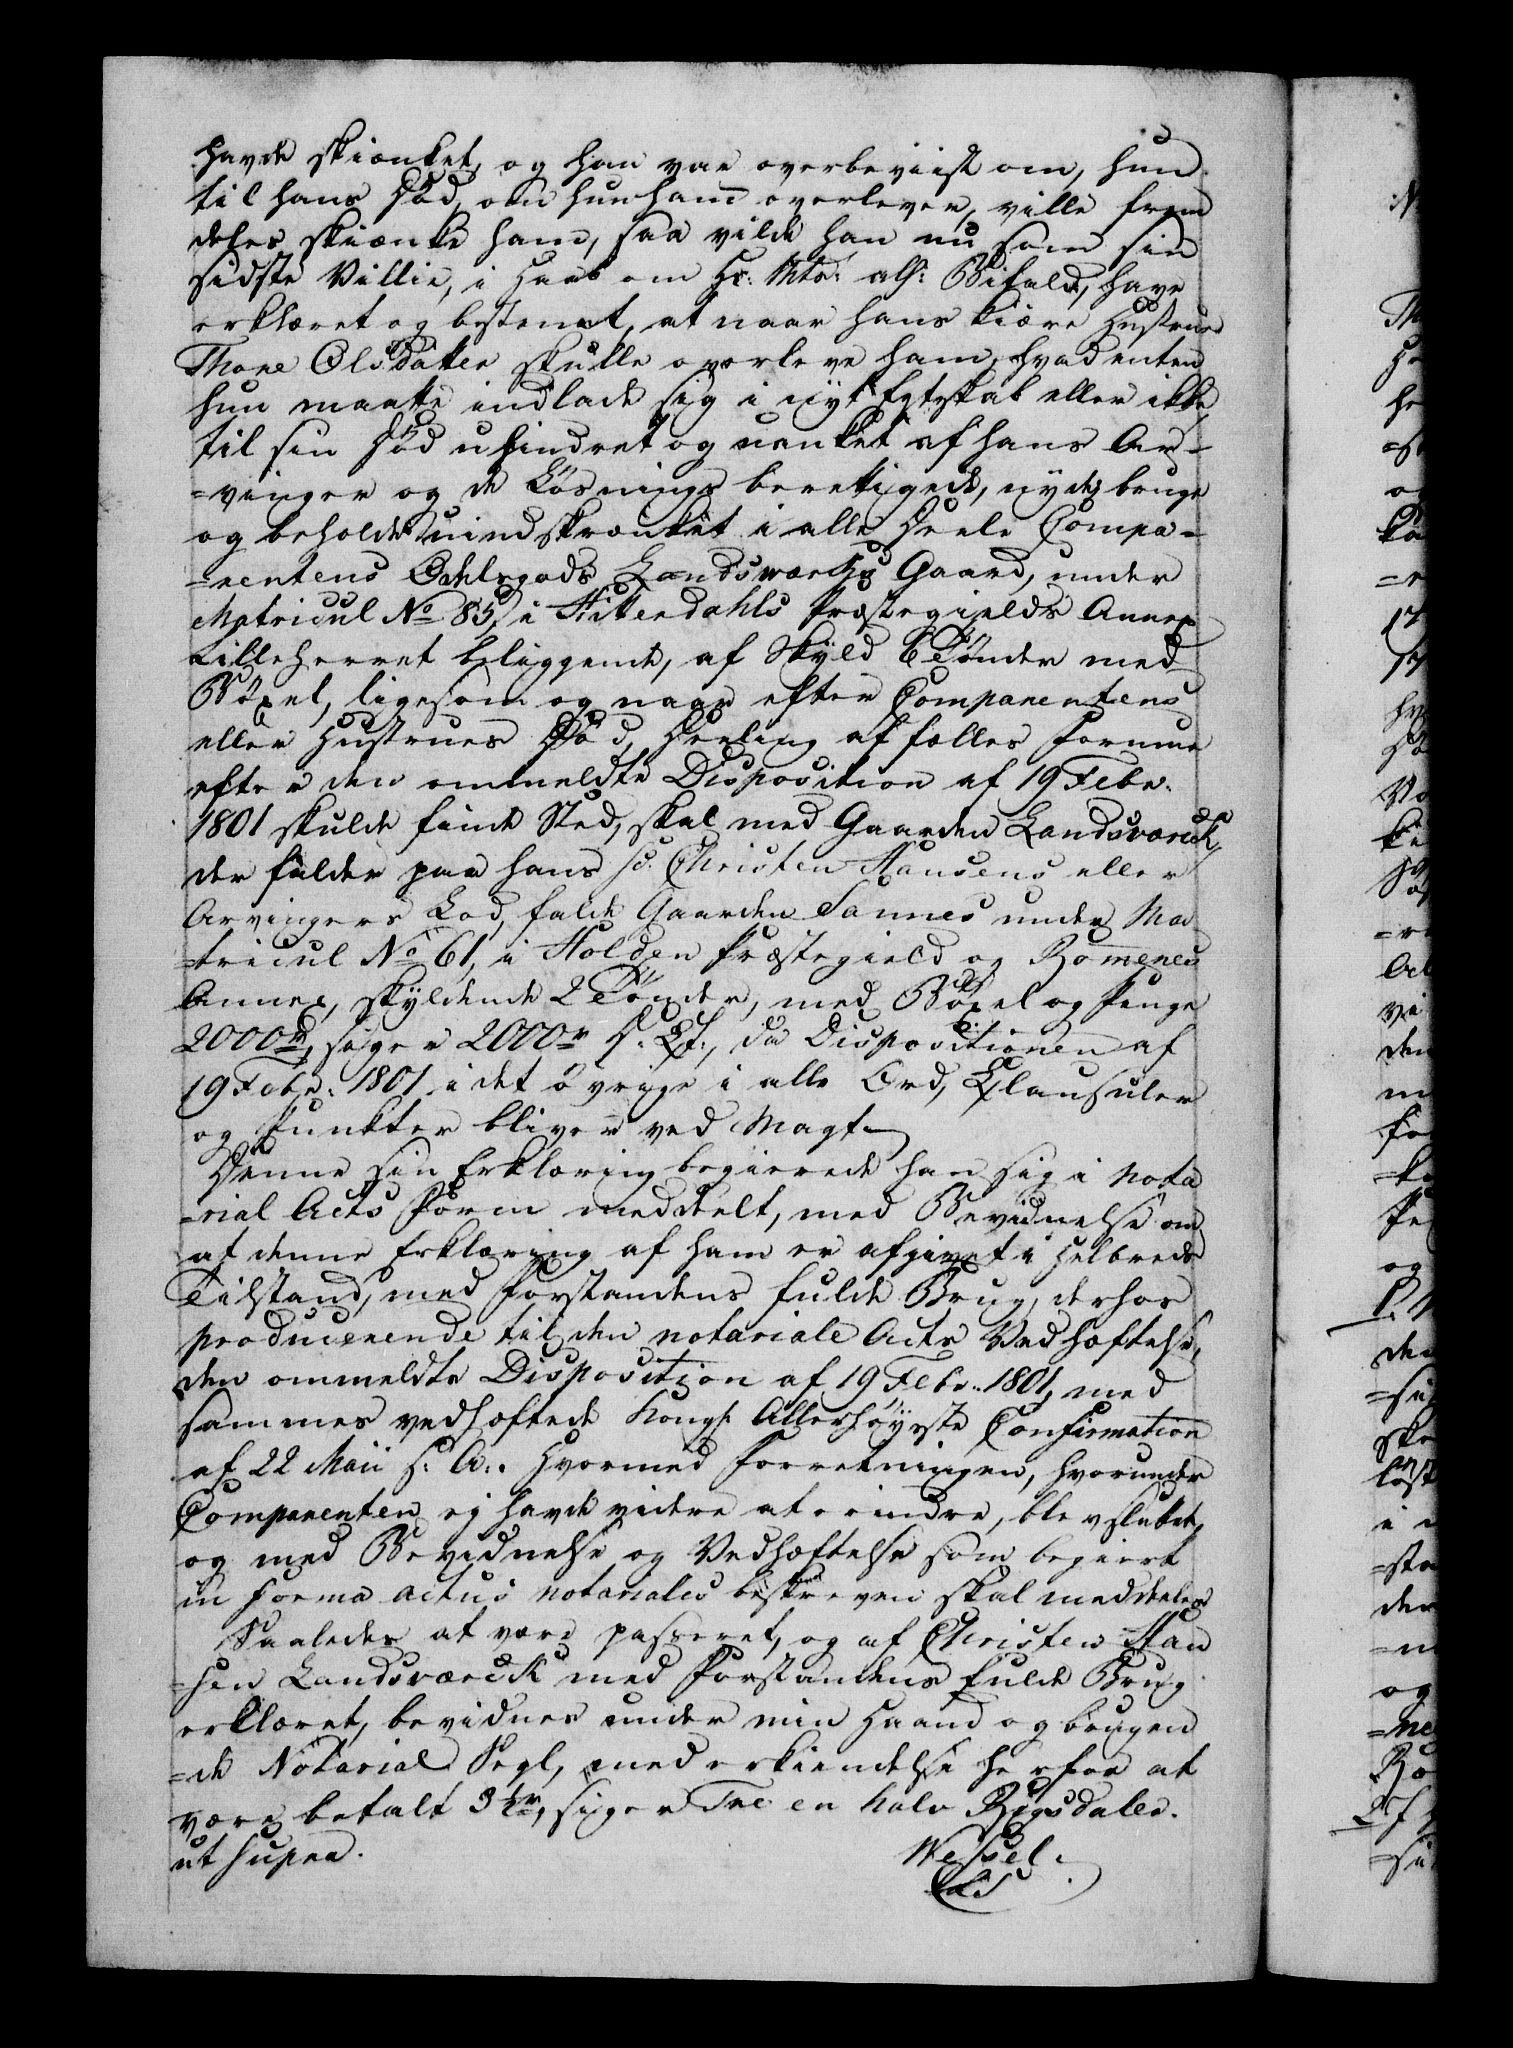 havde skiænket, og han var overbeviist om, hun
til hans Død, om hun ham overlever, ville frem
deles skiænke ham, saa vilde han nu som sin
sidste Villie, i Haab om Hs: Mts: all: Bifald, have
erklæret og bestemt, at naar hans kiære Hustrue
Thore Olsdatter skulle overleve ham, hvad enten
hun maatte indlade sig i nyt Egteskab eller ikke,
til sin Død uhindret og uanket af hans Ar-
=vinger og de Løsnings berettigede, nyde, bruge
og beholde uindskrænket i alle Deele Compa-
=rentens Odelsgods Landsværks Gaard, under
Matricul No 85, i Hitterdahls Præstegields Annex
Lilleherret beliggende, af Skyld 6 Tønder med
Bøxel, ligesom og naar efter Comparentens
eller Hustrues Død, Deeling af fælles Formue
efter den ommeldte Disposition af 19 Febr.
1801 skulde finde Sted, skal med Gaarden Landsværck,
der falder paa hans sc. Christen Hansens eller
Arvingers Lod, falde Gaarden Sannes under Ma
=tricul No 61, i Holden Præstegield og Romenes
Annex, skyldende 2 Tønder, med Bøxel og Penge
2000rd, siger 2000r D: C:, da Dispositionen af
19 Febr: 1801 i det øvrige i alle Ord, Clausuler
og Punkter bliver ved Magt.
Denne sin Erklæring begierede han sig i Nota
=rial Acts Form meddeelt, med Bevidnelse om
at denne Erklæring af ham er afgivet i Helbreds
Tilstand, med Forstandens fulde Brug, derhos
producerende til den notariale Acts Vedhæftelse,
den ommeldte Disposition af 19 Febr. 1801, med
sammes vedhæftede Kongl: Allerhøyeste Confirmation
af 22 Maii s: A:. Hvormed Forretningen, hvorunder
Comparenten ej havde videre at erindre, blev sluttet,
og med Bevidnelse og Vedhæftelse som begiert
in forma actus notariales beskreven skal meddeeles
Saaledes at være passeret, og af Christen Han
=sen Landsværck med Forstandens fulde Brug
erklæret, bevidnes under min Haand og brugen
=de Notarial Segl, med erkiendelse herfor at
være betalt 3½ r, siger Tre en halv Rigsdaler.
ut supra.
Wessel.
LS